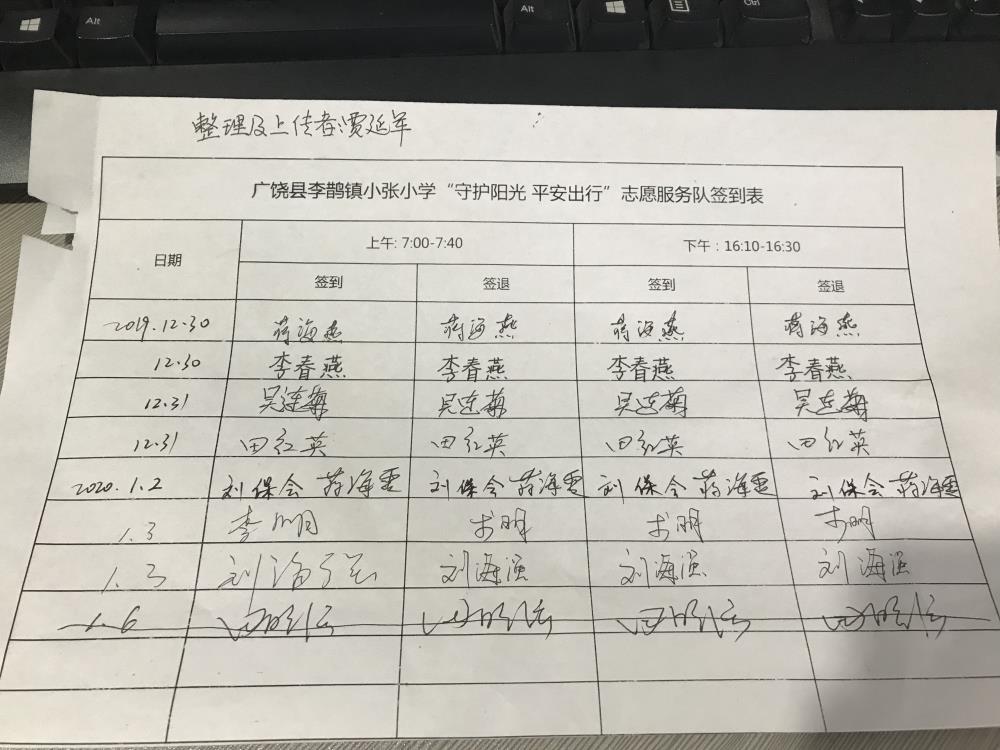 Alt
Ctrl
整理及上传者:贾延军
广饶县李鹊镇小张小学“守护阳光 平安出行”志愿服务队签到表
日期 上午: 7:00-7:40 下午：16:10-16:30
签到 签退 签到 签退
2019.12.30 蒋海燕 蒋海燕 蒋海燕 蒋海燕
12.30 李春燕 李春燕 李春燕 李春燕
12.31 吴连菊 吴连菊 吴连菊 吴连菊
12.31 田红英 田红英 田红英 田红英
2020.1.2 刘保会 蒋海雲 刘保会 蒋海雲 刘保会 蒋海雲 刘保会 蒋海雲
1.3 李明 李明 李明 李明
1.3 刘海强 刘海强 刘海强 刘海强
1.6